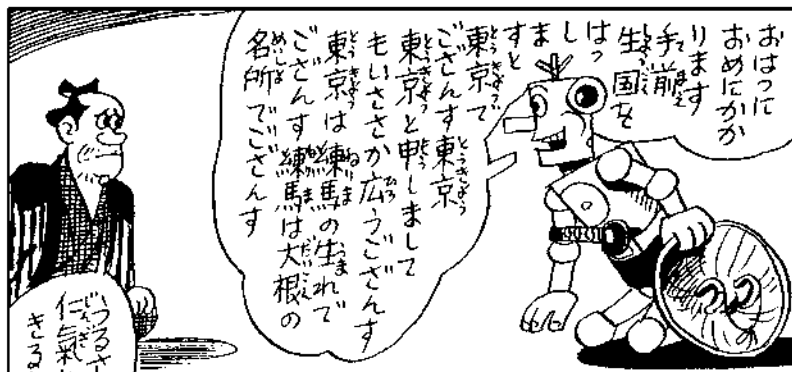 おはつに
おめにかか
ります
手前
生国を
はっ
しま
すと
東京で
ござんす東京
東京と申しまして
もいささか広うござんす
東京は練馬の生れで
ござんす練馬は大根の
名所でござんす
いつるさ
仁氣
きる